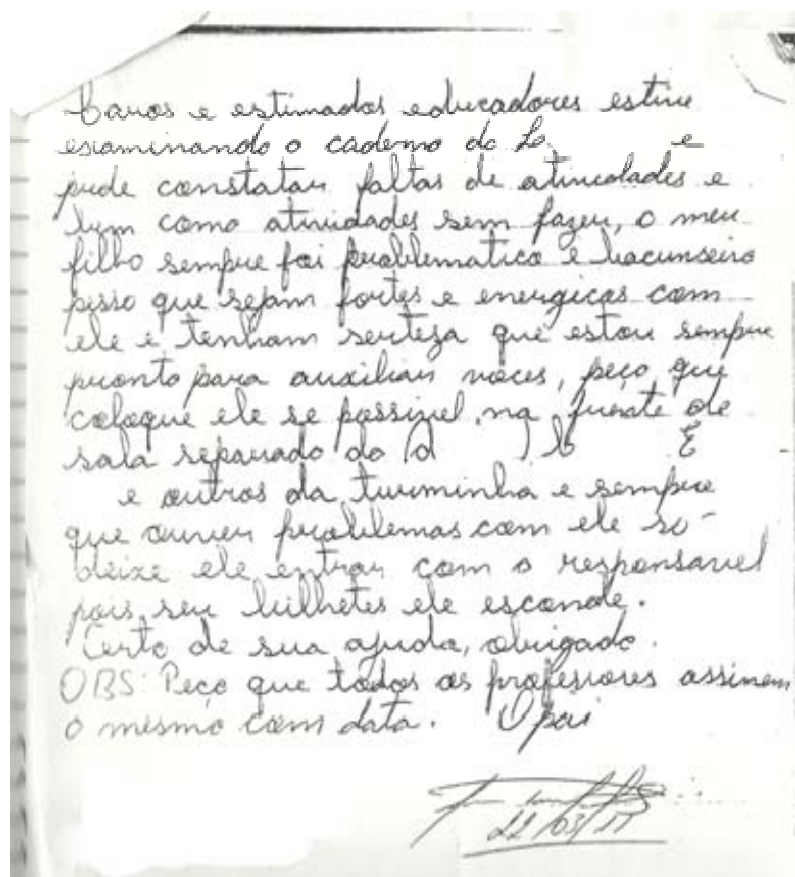 Caros e estimados educadores estive
examinando o caderno do L. e
pude constatar faltas de atividades e
bem como atividades sem fazer, o meu
filho sempre foi problematico e bacunseiro
pesso que sejam fortes e energicos com
ele e tenham serteza que estou sempre
pronto para auxiliar voces, peço que
coloque ele se possivel, na frente de
sala separado do E
e outros da turminha e sempre
que ouver problemas com ele só
deixe ele entrar com o responsavel
pois, seu bilhetes ele esconde.
Certo de sua ajuda, obrigado.
OBS: Peço que todos os professores assinem
o mesmo com data. O pai
22/03/11